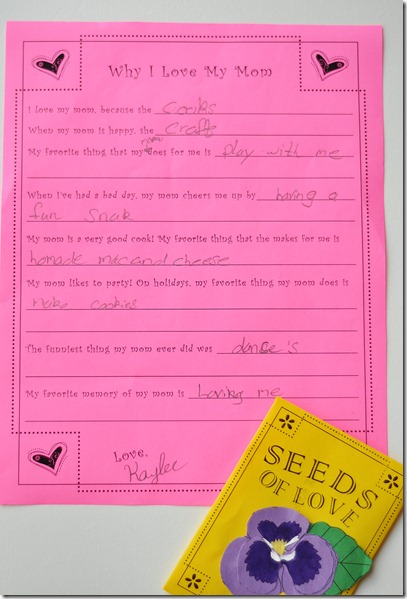 Why I Love My Mom
I love my mom, because she cooks
When my mom is happy, she crafts
mom
My favorite thing that my does for me is play with me
When I've had a bad day, my mom cheers me up by having a
fun snak
My mom is a very good cook! My favorite thing that she makes for me is
homade mac and cheese
My mom likes to party! On holidays, my favorite thing my mom does is
make cookies
The funniest thing my mom ever did was dance's
My favorite memory of my mom is Loving me
Love,
Kaylee
SEEDS
OF LOVE